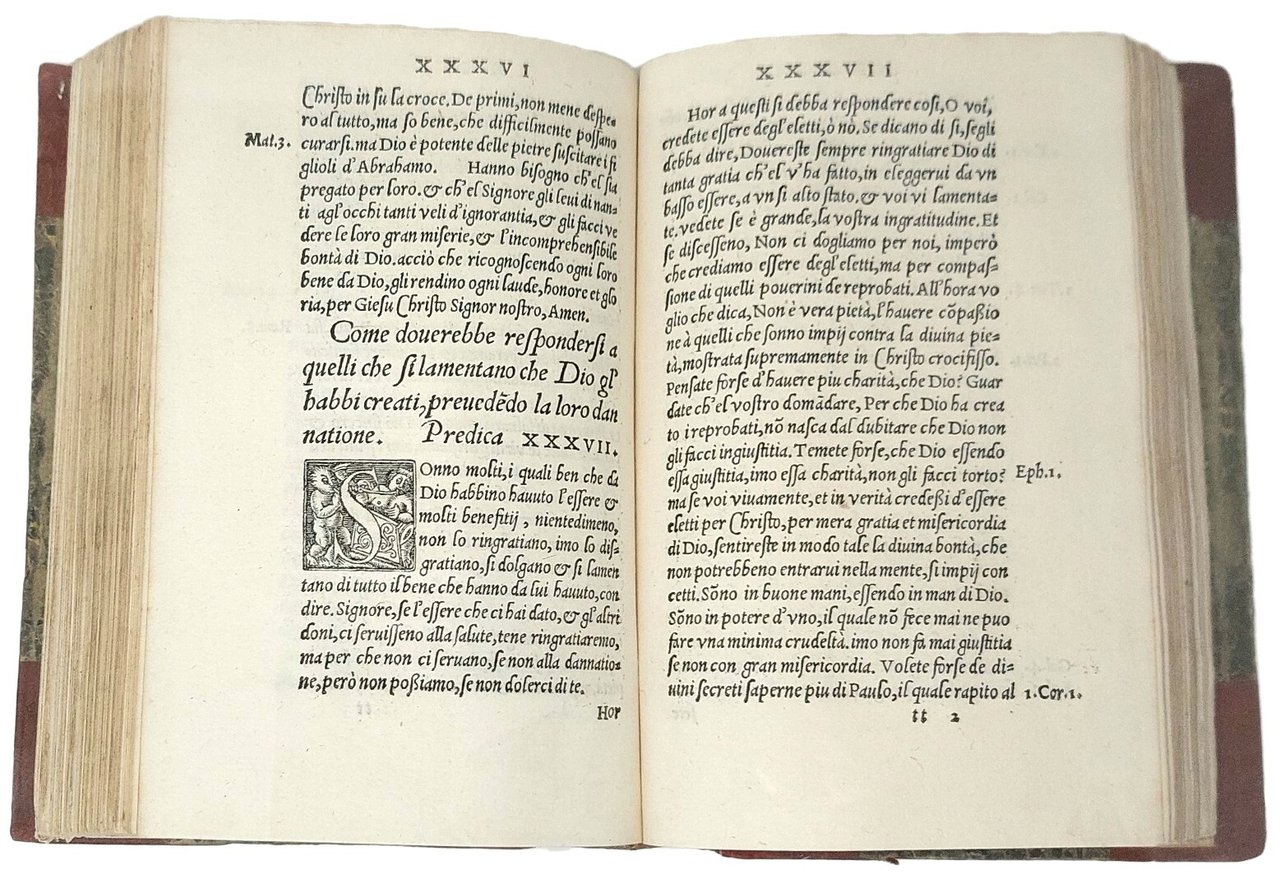 XXXVI
Christo in su la croce. De primi, non mene despe=
ro al tutto, ma so bene, che difficilmente possano
Mat.3. curarsi. ma Dio è potente delle pietre suscitare i fi
glioli d'Abrahamo. Hanno bisogno ch'el sia
pregato per loro. & ch'el Signore gli leui di nan=
ti agl'occhi tanti veli d'ignorantia, & gli facci ve
dere le loro gran miserie, & l'incomprehensibile
bontà di Dio. acciò che ricognoscendo ogni loro
bene da Dio, gli rendino ogni laude, honore et glo
ria, per Giesu Christo Signor nostro, Amen.
Come douerebbe respondersi a
quelli che si lamentano che Dio gl'
habbi creati, preuedẽdo la loro dan
natione. Predica XXXVII.
SOnno molti, i quali ben che da
Dio habbino hauuto l'essere &
molti benefitij, nientedimeno,
non lo ringratiano, imo lo dis=
gratiano, si dolgano & si lamen
tano di tutto il bene che hanno da lui hauuto, con
dire. Signore, se l'essere che ci hai dato, & gl'altri
doni, ci seruisseno alla salute, tene ringratiaremo,
ma per che non ci seruano, se non alla dannatio=
ne, però non poßiamo, se non dolerci di te.
Hor
XXXVII
Hor a questi si debba respondere cosi, O voi,
credete essere degl'eletti, ò nò. Se dicano di si, segli
debba dire, Douereste sempre ringratiare Dio di
tanta gratia ch'el v'ha fatto, in eleggerui da vn
basso essere, a vn si alto stato. & voi vi lamenta=
te. vedete se è grande, la vostra ingratitudine. Et
se dicesseno, Non ci dogliamo per noi, imperò
che crediamo essere degl'eletti, ma per compas=
sione di quelli pouerini de reprobati. All'hora vo
glio che dica, Non è vera pietà, l'hauere cõpaßio
ne à quelli che sonno impij contra la diuina pie=
tà, mostrata supremamente in Christo crocifisso.
Pensate forse d'hauere piu charità, che Dio? Guar
date ch'el vostro domãdare, Per che Dio ha crea
to i reprobati, nõ nasca dal dubitare che Dio non
gli facci ingiustitia. Temete forse, che Dio essendo
essa giustitia, imo essa charità, non gli facci torto? Eph.1.
ma se voi viuamente, et in verità credeßi d'essere
eletti per Christo, per mera gratia et misericordia
di Dio, sentireste in modo tale la diuina bontà, che
non potrebbeno entrarui nella mente, si impij con
cetti. Sõno in buone mani, essendo in man di Dio.
Sõno in potere d'vno, il quale nõ fece mai ne puo
fare vna minima crudeltà. imo non fa mai giustitia
se non con gran misericordia. Volete forse de di=
uini secreti saperne piu di Paulo, il quale rapito al 1.Cor.1.
tt 2